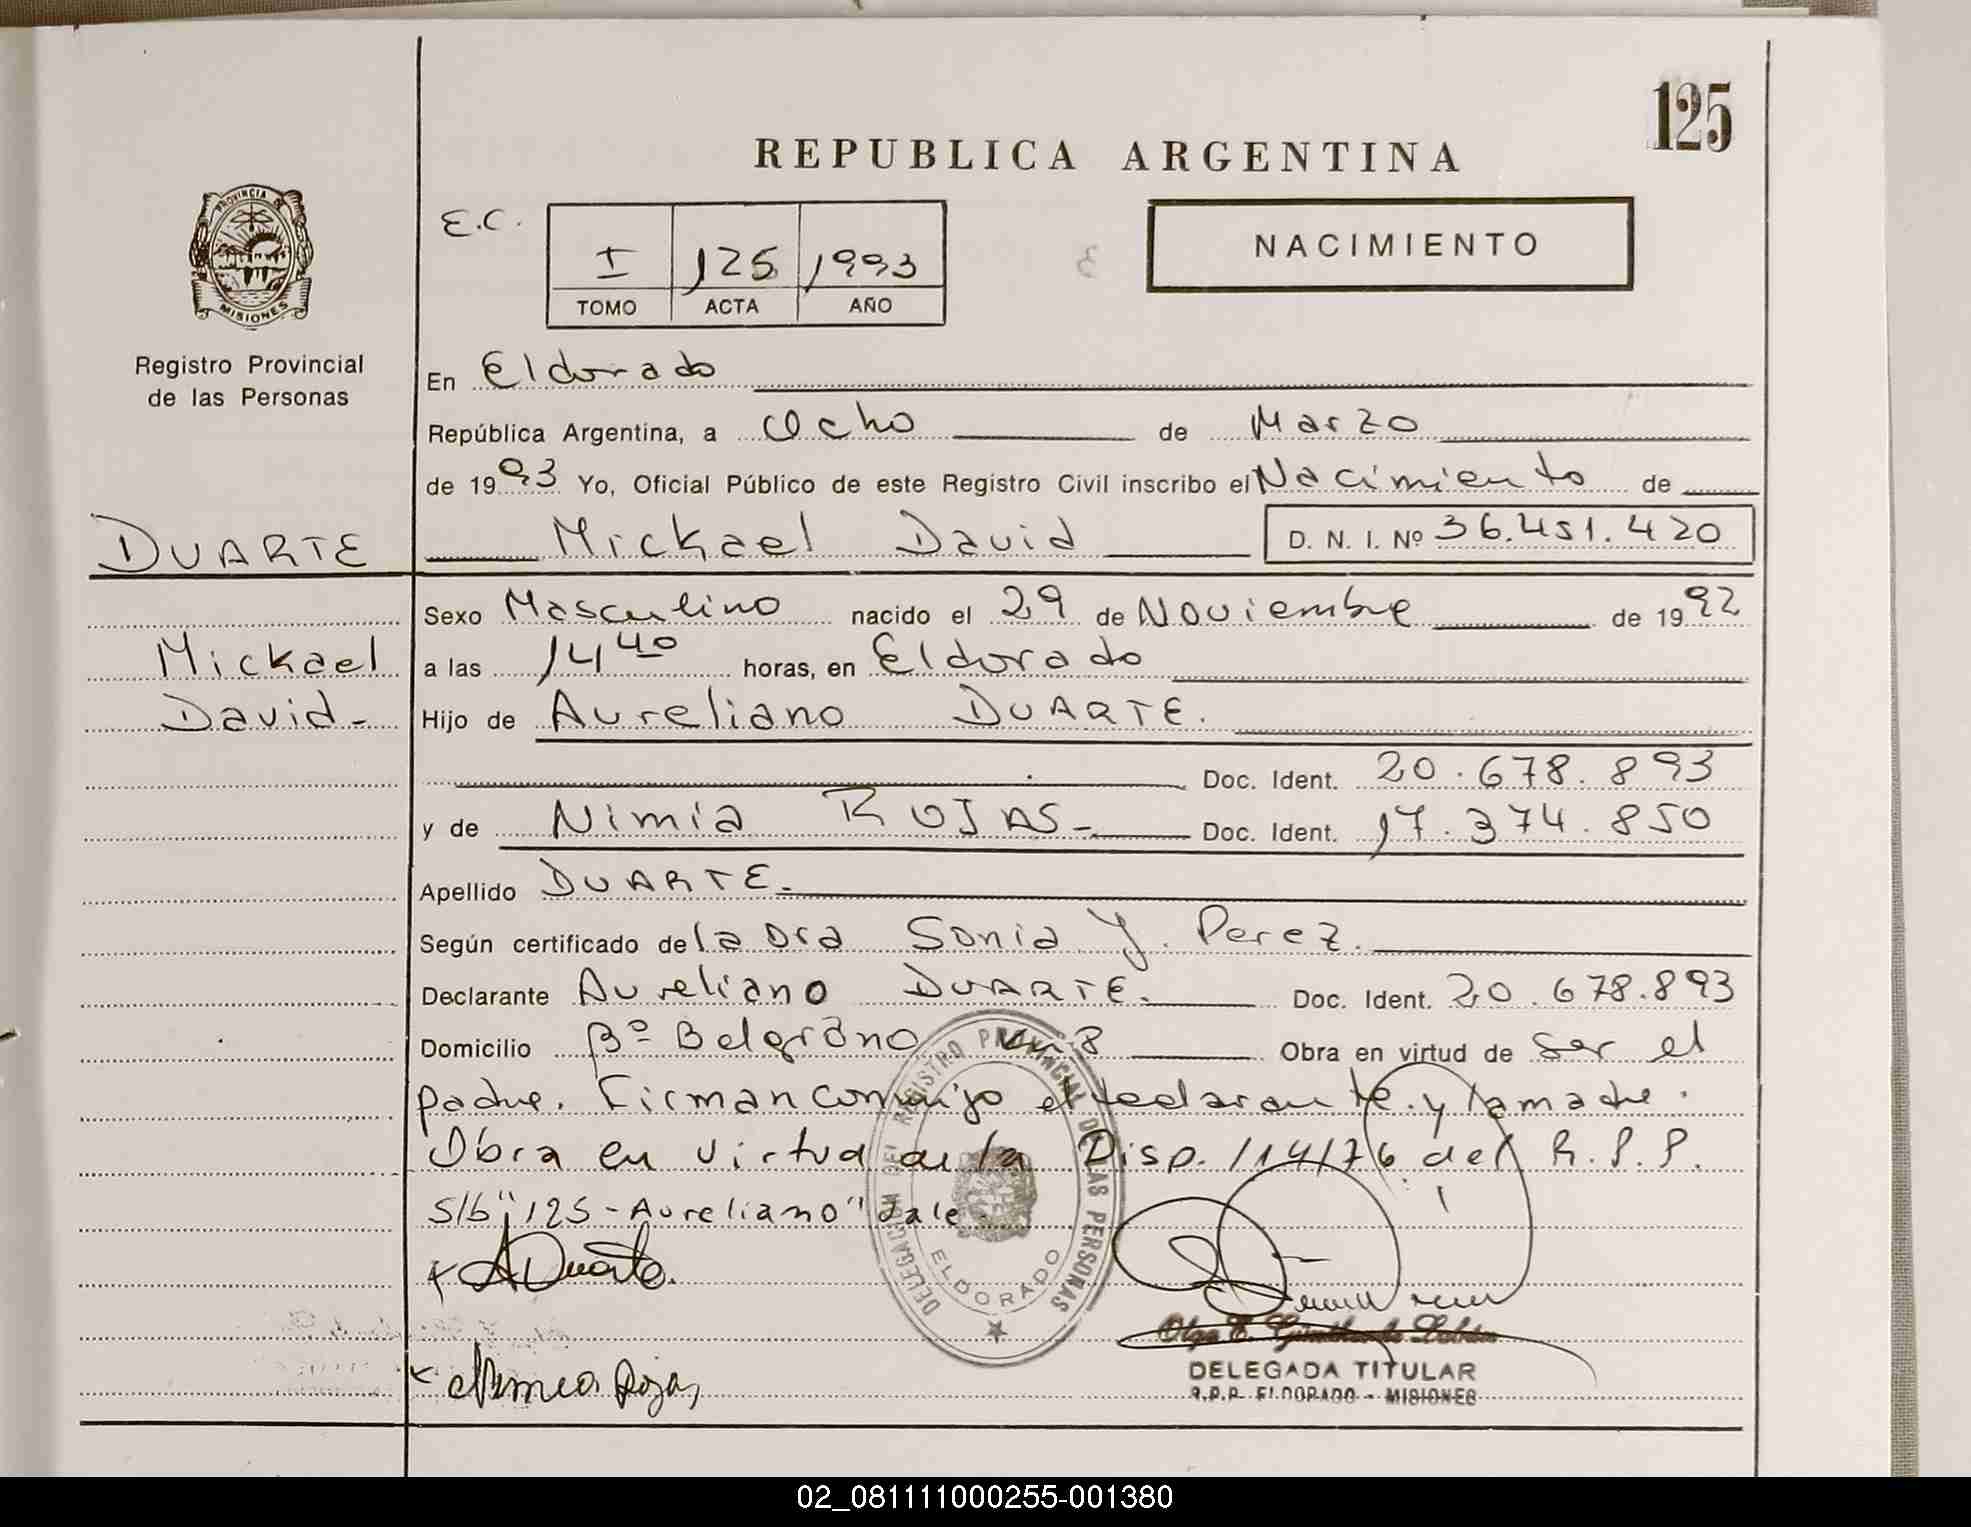 125
REPUBLICA ARGENTINA
PROVINCIA DE
MISIONES
Registro Provincial
de las Personas
E.C.
I 125 1993
TOMO ACTA AÑO
NACIMIENTO
En Eldorado
República Argentina, a Ocho de Marzo
de 1993 Yo, Oficial Público de este Registro Civil inscribo el Nacimiento de
DUARTE
Mickael David D. N. I. Nº 36.451.420
Sexo Masculino nacido el 29 de Noviembre de 1992
Mickael
a las 14 40 horas, en Eldorado
David-
Hijo de Aureliano DUARTE.
Doc. Ident. 20.678.893
y de Nimia ROJAS- Doc. Ident. 17.374.850
Apellido DUARTE.
Según certificado de la Dra Sonia Y. Perez.
Declarante Aureliano DUARTE. Doc. Ident. 20.678.893
Domicilio Bº Belgrano 8 Obra en virtud de ser el
padre. Firman conmigo el declarante y la madre.
Obra en virtud de la Disp. 114/76 del R.P.P.
S/b "125-Aureliano" Vale
A Duarte.
DELEGACION DEL REGISTRO PROVINCIAL DE LAS PERSONAS
ELDORADO
Olga E.
DELEGADA TITULAR
R.P.P. ELDORADO - MISIONES
Nimia Rojas
02_081111000255-001380